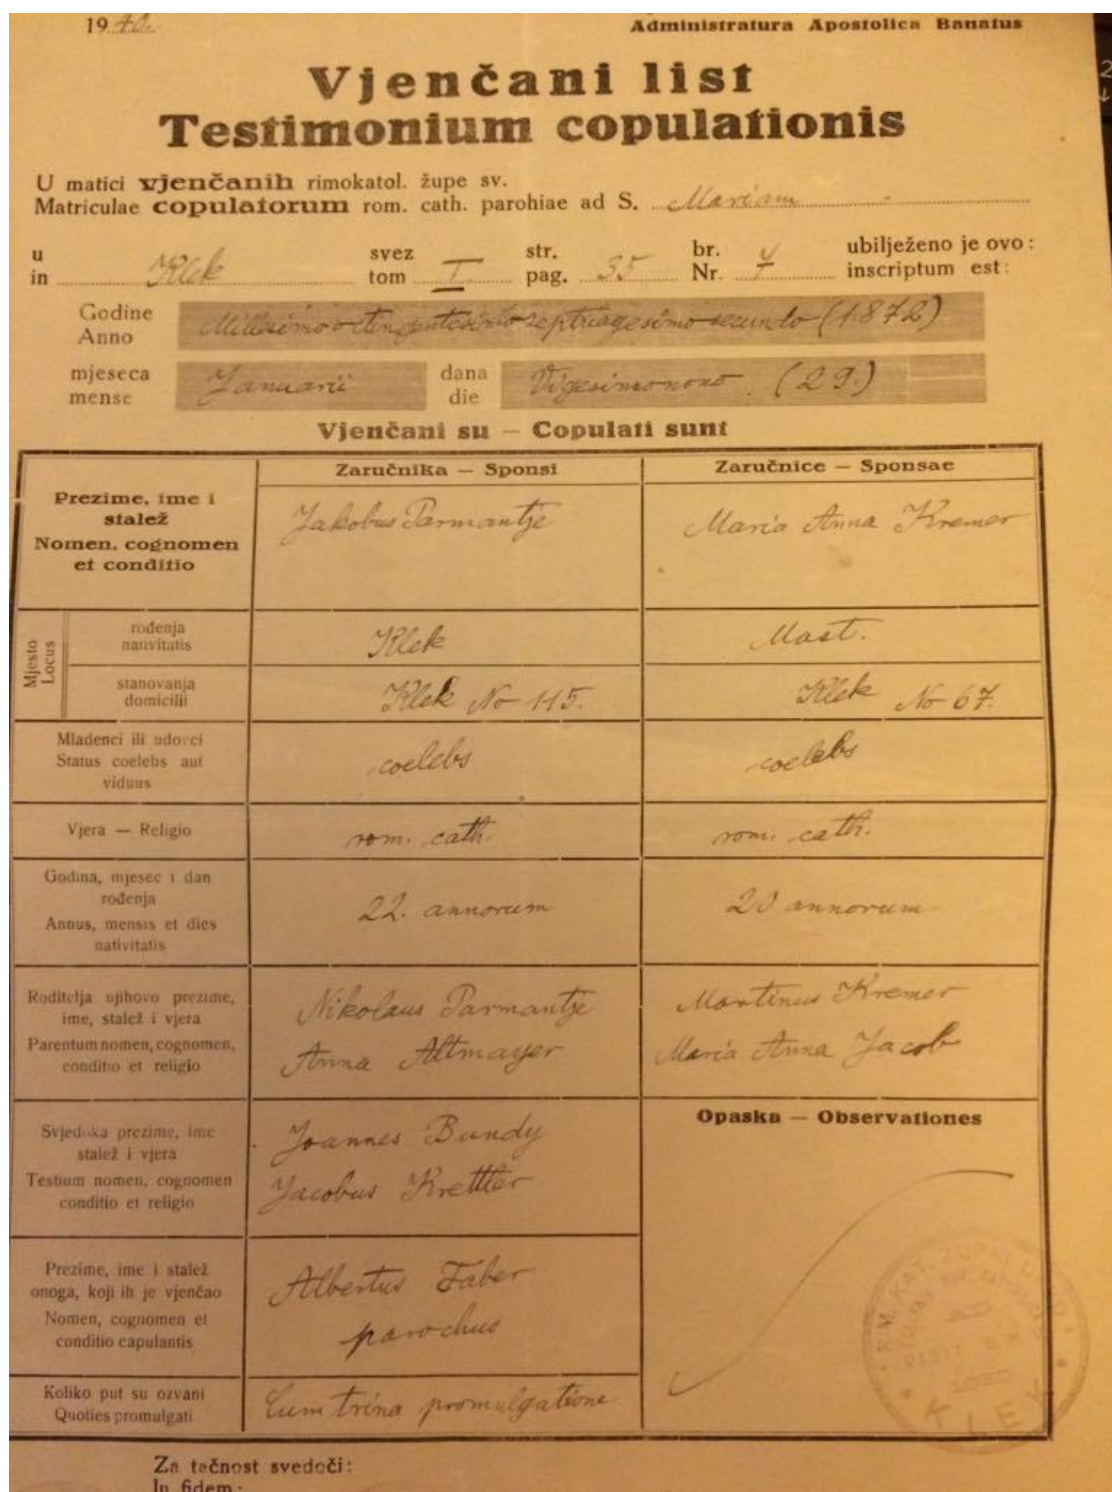 1940.
Administratura Apostolica Banatus
Vjenčani list
Testimonium copulationis
U matici vjenčanih rimokatol. župe sv.
Matriculae copulatorum rom. cath. parohiae ad S. Mariam
u svez str. br. ubilježeno je ovo:
in Klek tom I pag. 35 Nr. inscriptum est:
Godine
Anno Millesimo octingentesimo septuagesimo secundo (1872)
mjeseca dana
mense Januarii die Vigesimonono (29.)
Vjenčani su — Copulati sunt
Zaručnika — Sponsi Zaručnice — Sponsae
Prezime, ime i
stalež
Nomen, cognomen
et conditio
Jakobus Parmantje Maria Anna Kremer
Mjesto
Locus
rođenja
nativitatis
Klek Mast.
stanovanja
domicilii
Klek No 115. Klek No 67.
Mladenci ili udovci
Status coelebs aut
viduus
coelebs coelebs
Vjera — Religio rom. cath. rom. cath.
Godina, mjesec i dan
rođenja
Annus, mensis et dies
nativitatis
22. annorum 20 annorum
Roditelja njihovo prezime,
ime, stalež i vjera
Parentum nomen, cognomen,
conditio et religio
Nikolaus Parmantje Martinus Kremer
Anna Altmayer Maria Anna Jacob
Svjedoka prezime, ime
stalež i vjera
Testium nomen, cognomen
conditio et religio
Joannes Bundy
Jacobus Krettler
Opaska — Observationes
Prezime, ime i stalež
onoga, koji ih je vjenčao
Nomen, cognomen et
conditio capulantis
Albertus Faber
parochus
Koliko put su ozvani
Quoties promulgati
Cum trina promulgatione
RIM. KAT. ŽUPNI URED
KLEK
Za tačnost svedoči:
In fidem: